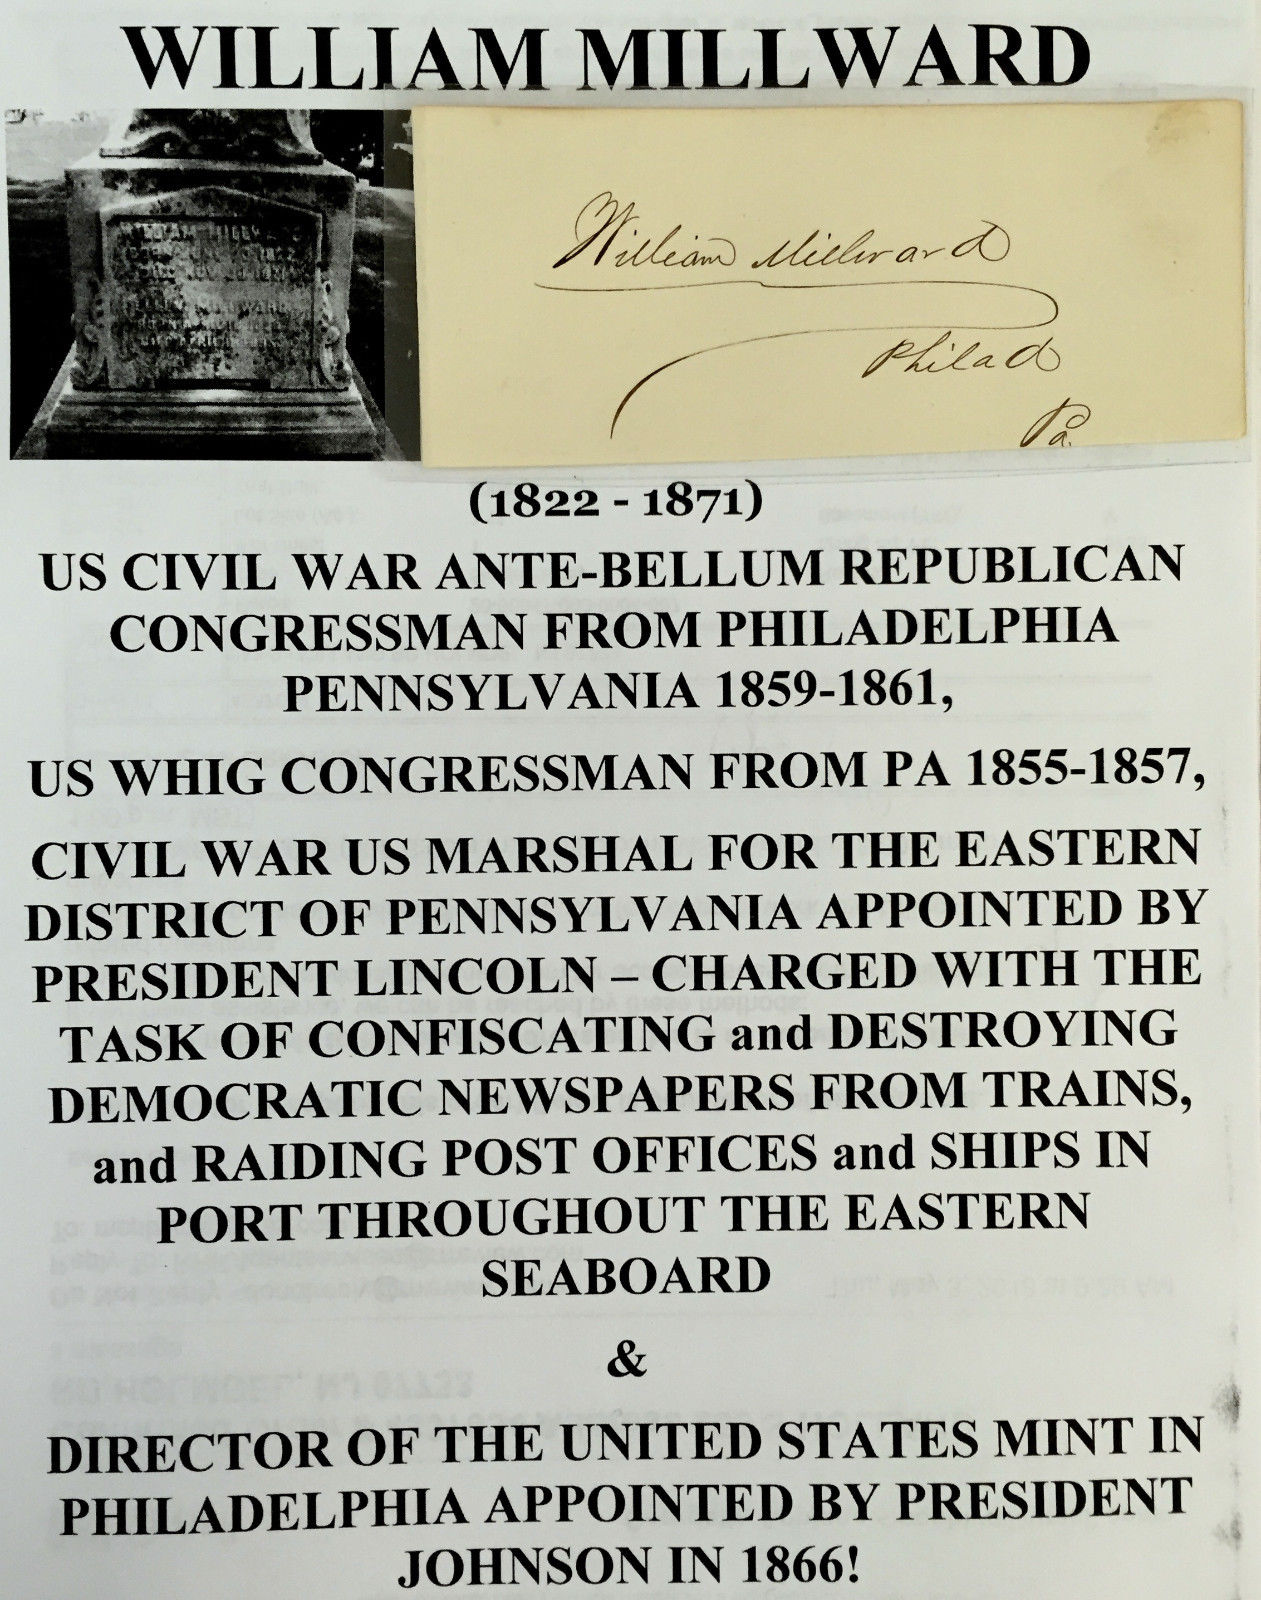 WILLIAM MILLWARD
William Millward
Philad
Pa.
(1822 - 1871)
US CIVIL WAR ANTE-BELLUM REPUBLICAN
CONGRESSMAN FROM PHILADELPHIA
PENNSYLVANIA 1859-1861,
US WHIG CONGRESSMAN FROM PA 1855-1857,
CIVIL WAR US MARSHAL FOR THE EASTERN
DISTRICT OF PENNSYLVANIA APPOINTED BY
PRESIDENT LINCOLN – CHARGED WITH THE
TASK OF CONFISCATING and DESTROYING
DEMOCRATIC NEWSPAPERS FROM TRAINS,
and RAIDING POST OFFICES and SHIPS IN
PORT THROUGHOUT THE EASTERN
SEABOARD
&
DIRECTOR OF THE UNITED STATES MINT IN
PHILADELPHIA APPOINTED BY PRESIDENT
JOHNSON IN 1866!